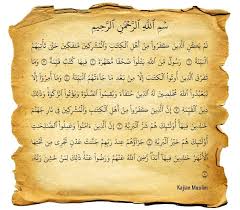 سْمِ ٱللَّهِ ٱلرَّحْمَٰنِ ٱلرَّحِيمِ
لَمْ يَكُنِ ٱلَّذِينَ كَفَرُوا۟ مِنْ أَهْلِ ٱلْكِتَٰبِ وَٱلْمُشْرِكِينَ مُنفَكِّينَ حَتَّىٰ تَأْتِيَهُمُ
ٱلْبَيِّنَةُ ۝ رَسُولٌ مِّنَ ٱللَّهِ يَتْلُوا۟ صُحُفًا مُّطَهَّرَةً ۝ فِيهَا كُتُبٌ قَيِّمَةٌ ۝ وَمَا تَفَرَّقَ ٱلَّذِينَ
أُوتُوا۟ ٱلْكِتَٰبَ إِلَّا مِنۢ بَعْدِ مَا جَآءَتْهُمُ ٱلْبَيِّنَةُ ۝ وَمَآ أُمِرُوٓا۟ إِلَّا لِيَعْبُدُوا۟ ٱللَّهَ
مُخْلِصِينَ لَهُ ٱلدِّينَ حُنَفَآءَ وَيُقِيمُوا۟ ٱلصَّلَوٰةَ وَيُؤْتُوا۟ ٱلزَّكَوٰةَ وَذَٰلِكَ دِينُ ٱلْقَيِّمَةِ
۝ إِنَّ ٱلَّذِينَ كَفَرُوا۟ مِنْ أَهْلِ ٱلْكِتَٰبِ وَٱلْمُشْرِكِينَ فِى نَارِ جَهَنَّمَ خَٰلِدِينَ فِيهَآ
أُو۟لَٰٓئِكَ هُمْ شَرُّ ٱلْبَرِيَّةِ ۝ إِنَّ ٱلَّذِينَ ءَامَنُوا۟ وَعَمِلُوا۟ ٱلصَّٰلِحَٰتِ
أُو۟لَٰٓئِكَ هُمْ خَيْرُ ٱلْبَرِيَّةِ ۝ جَزَآؤُهُمْ عِندَ رَبِّهِمْ جَنَّٰتُ عَدْنٍ تَجْرِى مِن تَحْتِهَا
ٱلْأَنْهَٰرُ خَٰلِدِينَ فِيهَآ أَبَدًا رَّضِىَ ٱللَّهُ عَنْهُمْ وَرَضُوا۟ عَنْهُ ذَٰلِكَ لِمَنْ خَشِىَ رَبَّهُۥ
۝
Kajian Muslim